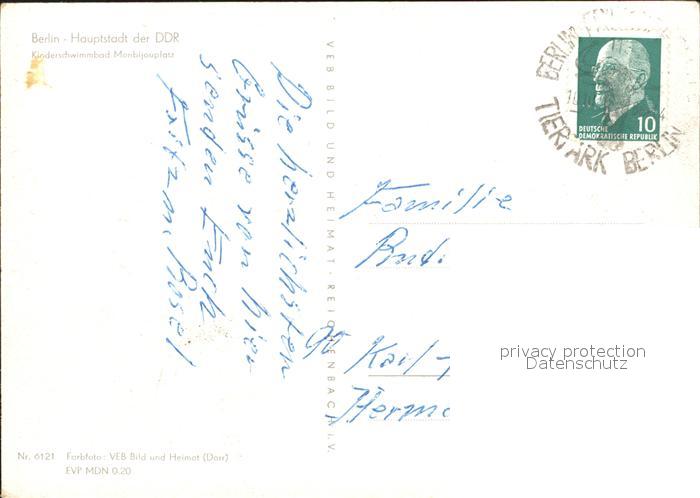 Berlin - Hauptstadt der DDR
Kinderschwimmbad Monbijouplatz
Die herzlichsten
Grüsse von hier
senden Euch
Fritz u. Rosel
VEB BILD UND HEIMAT · REICHENBACH i.V.
BERLIN
TIERPARK BERLIN
DEUTSCHE
DEMOKRATISCHE REPUBLIK
10
Familie
Karl-
Herm
privacy protection
Datenschutz
Nr. 6121 Farbfoto: VEB Bild und Heimat (Dorr)
EVP MDN 0.20